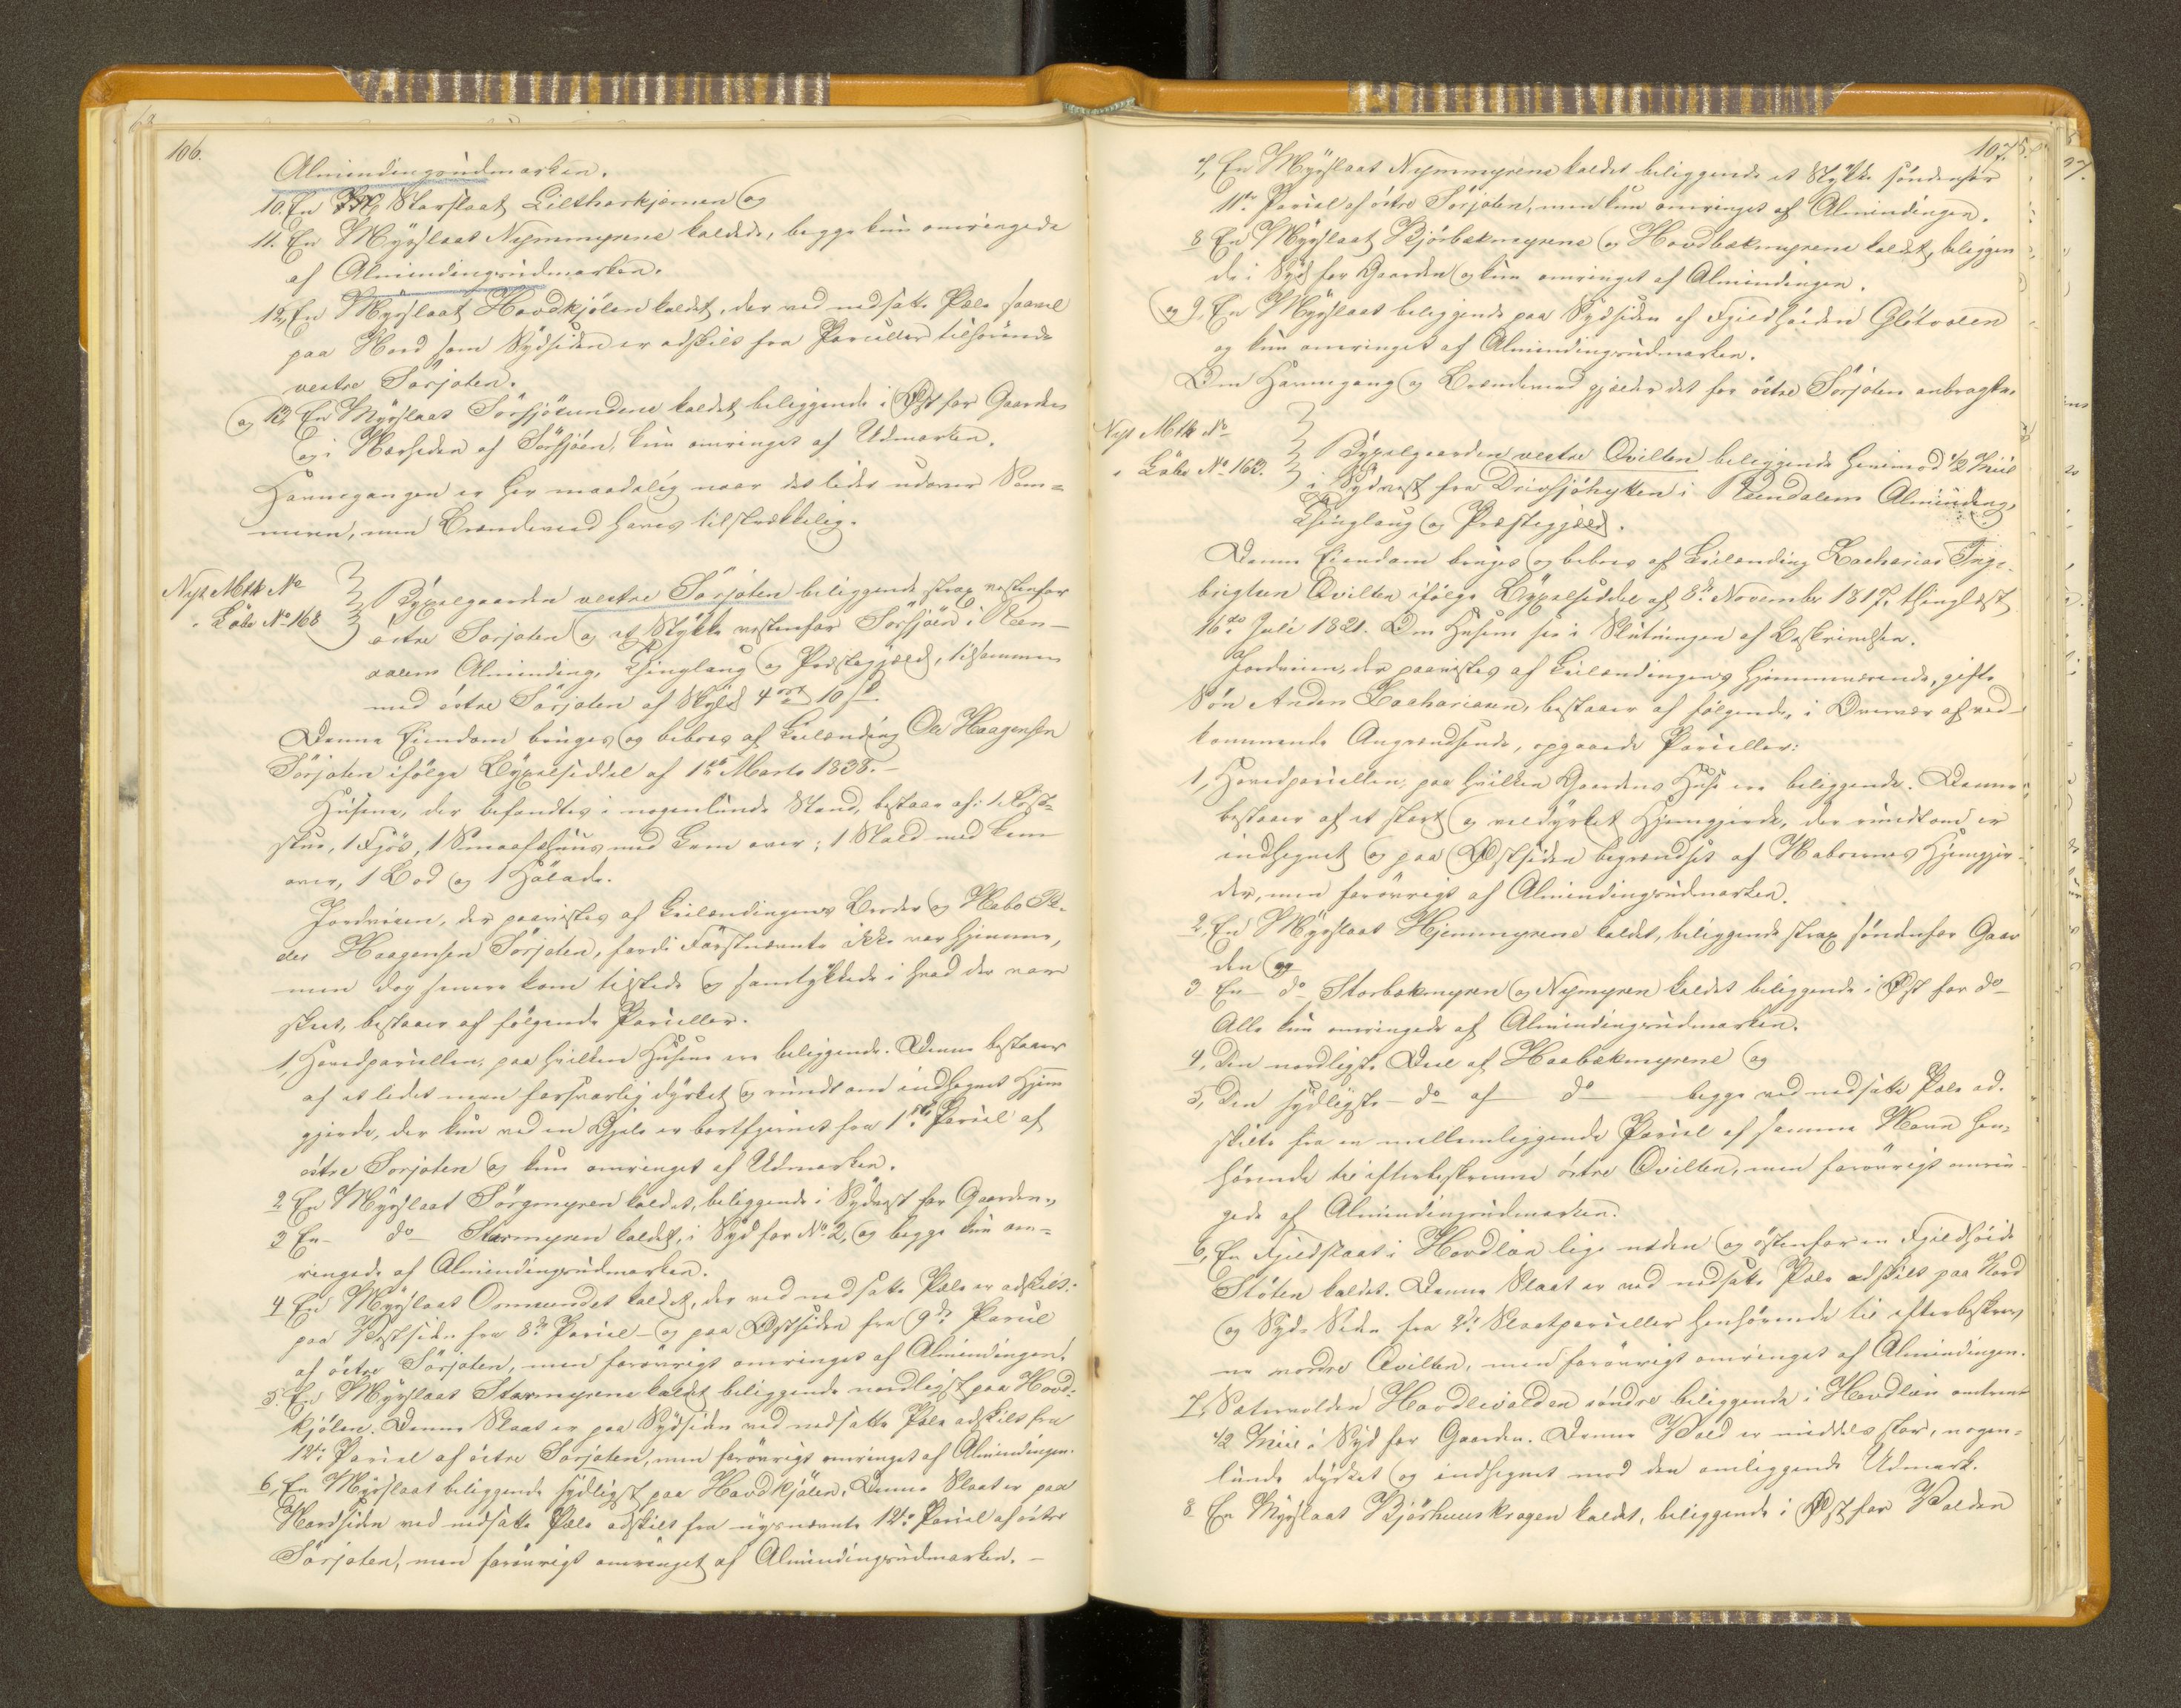 106.
Almindingsudmarken.
10. En Starslaat Lilletharkjernen og
11. En Myrslaat Nymmyrene kaldede, begge kun omringede
af Almindingsudmarken.
12, En Myrslaat Hovdkjølen kaldet, der ved nedsatte Pæle saavel
paa Nord som Sydsiden er adskilt fra Parceller tilhørende
vestre Sørjoten.
og 13, En Myrslaat Sörsjösundene kaldet beliggende i Øst for Gaarden
og i Nærheden af Sørsjøen, kun omringet af Udmarken.
Havnegangen er her maadelig naar det lider udover Som=
meren, men Brændeved haves tilstrækkelig.
Nyt Mtk No
" Løbe No 168
Bygselgaarden vestre Sörjoten beliggende strax vestenfor
østre Sörjoten og et Stykke vestenfor Sörsjöen i Ren-
dalens Alminding, Thinglaug og Præstegjeld, tilsammen
med östre Sörjoten af Skyld 4 ort 10 s.
Denne Eiendom bruges og beboes af Leilænding Ole Haagensen
Sörjoten ifølge Bygselseddel af 1ste Marts 1838. -
Husene, der befandtes i nogenlunde Stand, bestaar af: 1
stue, 1 Fjös, 1 Smaafæhuus med Lem over; 1 Stald med Lem
over, 1 Bod og 1 Hölade.
Jordveien, der paavistes af Leilændingens Broder og Nabo Pe-
der Haagensen Sörjoten, fordi Förstnævnte ikke var hjemme,
men dog senere kom tilstede og samtykkede i hvad der var
skeet, bestaar af følgende Parceller.
1, Hovedparcellen, paa hvilken Husene ere beliggende. Denne bestaaer
af et lidet men forsvarlig dyrket og rundt om indhegnet Hjem
gjerde, der kun ved en Gjele er bortfjernet fra 1ste Parcel af
østre Sorjoten og kun omringet af Udmarken.
2 En Myrslaat Sörgmyren kaldet, beliggende i Sydvest for Gaarden,
3 En - do - Starmyren kaldet, i Syd for No 2, og begge kun om=
ringede af Almindingsudmarken.
4 En Myrslaat Ormsundet kaldet, der ved nedsatte Pæle er adskilt:
paa Vestsiden fra 8de Parcel - og paa Østsiden fra 9de Parcel
af östre Sörjoten, men forøvrigt omringet af Almindingen.
5. En Myrslaat Starmyrene kaldet beliggende nordligst paa Hovd=
kjölen. Denne Slaat er paa Sydsiden ved nedsatte Pæle adskilt fra
12te Parcel af östre Sörjoten, men forøvrigt omringet af Almindingen.
6, En Myrslaat beliggende sydligst paa Hovdkjölen. Denne Slaat er paa
Nordsiden ved nedsatte Pæle adskilt fra nysnævnte 12te Parcel af östre
Sörjoten, men forøvrigt omringet af Almindingsudmarken. -
107.
7, En Myrslaat Nymmyrene kaldet beliggende et Stykke søndenfor
11te Parcel af östre Sörjoten, men kun omringet af Almindingen.
8 En Myrslaat Bjørbækmyrene og Hovdbækmyrene kaldet, beliggen
de i Syd for Gaarden og kun omringet af Almindingen.
og 9, En Myrslaat beliggende paa Sydsiden af Fjeldhøiden Gløtvolen
og kun omringet af Almindingsudmarken.
Om Havnegang og Brændeved gjælder det for östre Sörjoten anbragte.
Nyt Mtk No
" Løbe No 169.
Bygselgaarden vestre Qvilten beliggende henimod 1/2 Miil
i Sydvest fra Drevsjöhytten i Rendalens Alminding,
Thinglaug og Præstegjeld.
Denne Eiendom bruges og beboes af Leilænding Zacharias Inge-
brigtsen Qvilten ifølge Bygselseddel af 8de November 1817, thinglæst
16de Juli 1821. Om Husene see i Slutningen af Beskrivelsen.
Jordveien, der paavistes af Leilændingens hjemmeværende, gifte
Søn Anders Zachariasen, bestaaer af følgende, i Overvær af ved-
kommende Angrændsende, opgaaede Parceller:
1, Hovedparcellen, paa hvilken Gaardens Huse ere beliggende. Denne
bestaaer af et stort og veldyrket Hjemgjerde, der rundtom er
indhegnet og paa Østsiden begrændset af Naboernes Hjemgjer-
der, men forøvrigt af Almindingsudmarken.
2, En Myrslaat Hjemmyrene kaldet, beliggende strax søndenfor Gaar
den og
3 En - do Storbækmyren og Nymyren kaldet beliggende i Øst for do -
Alle kun omringede af Almindingsudmarken.
4, Den nordligste Deel af Haabækmyrene og
5, Den sydligste - do af - do - begge ved nedsatte Pæle ad-
skilte fra en mellemliggende Parcel af samme Navn hen-
hørende til efterbeskrevne östre Qvilten, men forøvrigt omrin
gede af Almindingsudmarken.
6, En Fjeldslaat i Hovdlien lige neden og østenfor en Fjeldhøide
Stöten kaldet. Denne Slaat er ved nedsatte Pæle adskilt paa Nord
og Syd Siden fra 2de Slaatparceller henhørende til efterbeskrev
ne nordre Qvilten, men forøvrigt omringet af Almindingen.
7, Sætervolden Hovdlivolden söndre beliggende i Hovdlien omtrent
1/2 Miil i Syd for Gaarden. Denne Vold er middels stor, nogen=
lunde dyrket og indhegnet mod den omliggende Udmark.
8 En Myrslaat Bjørhuuskragen kaldet, beliggende i Øst for Volden